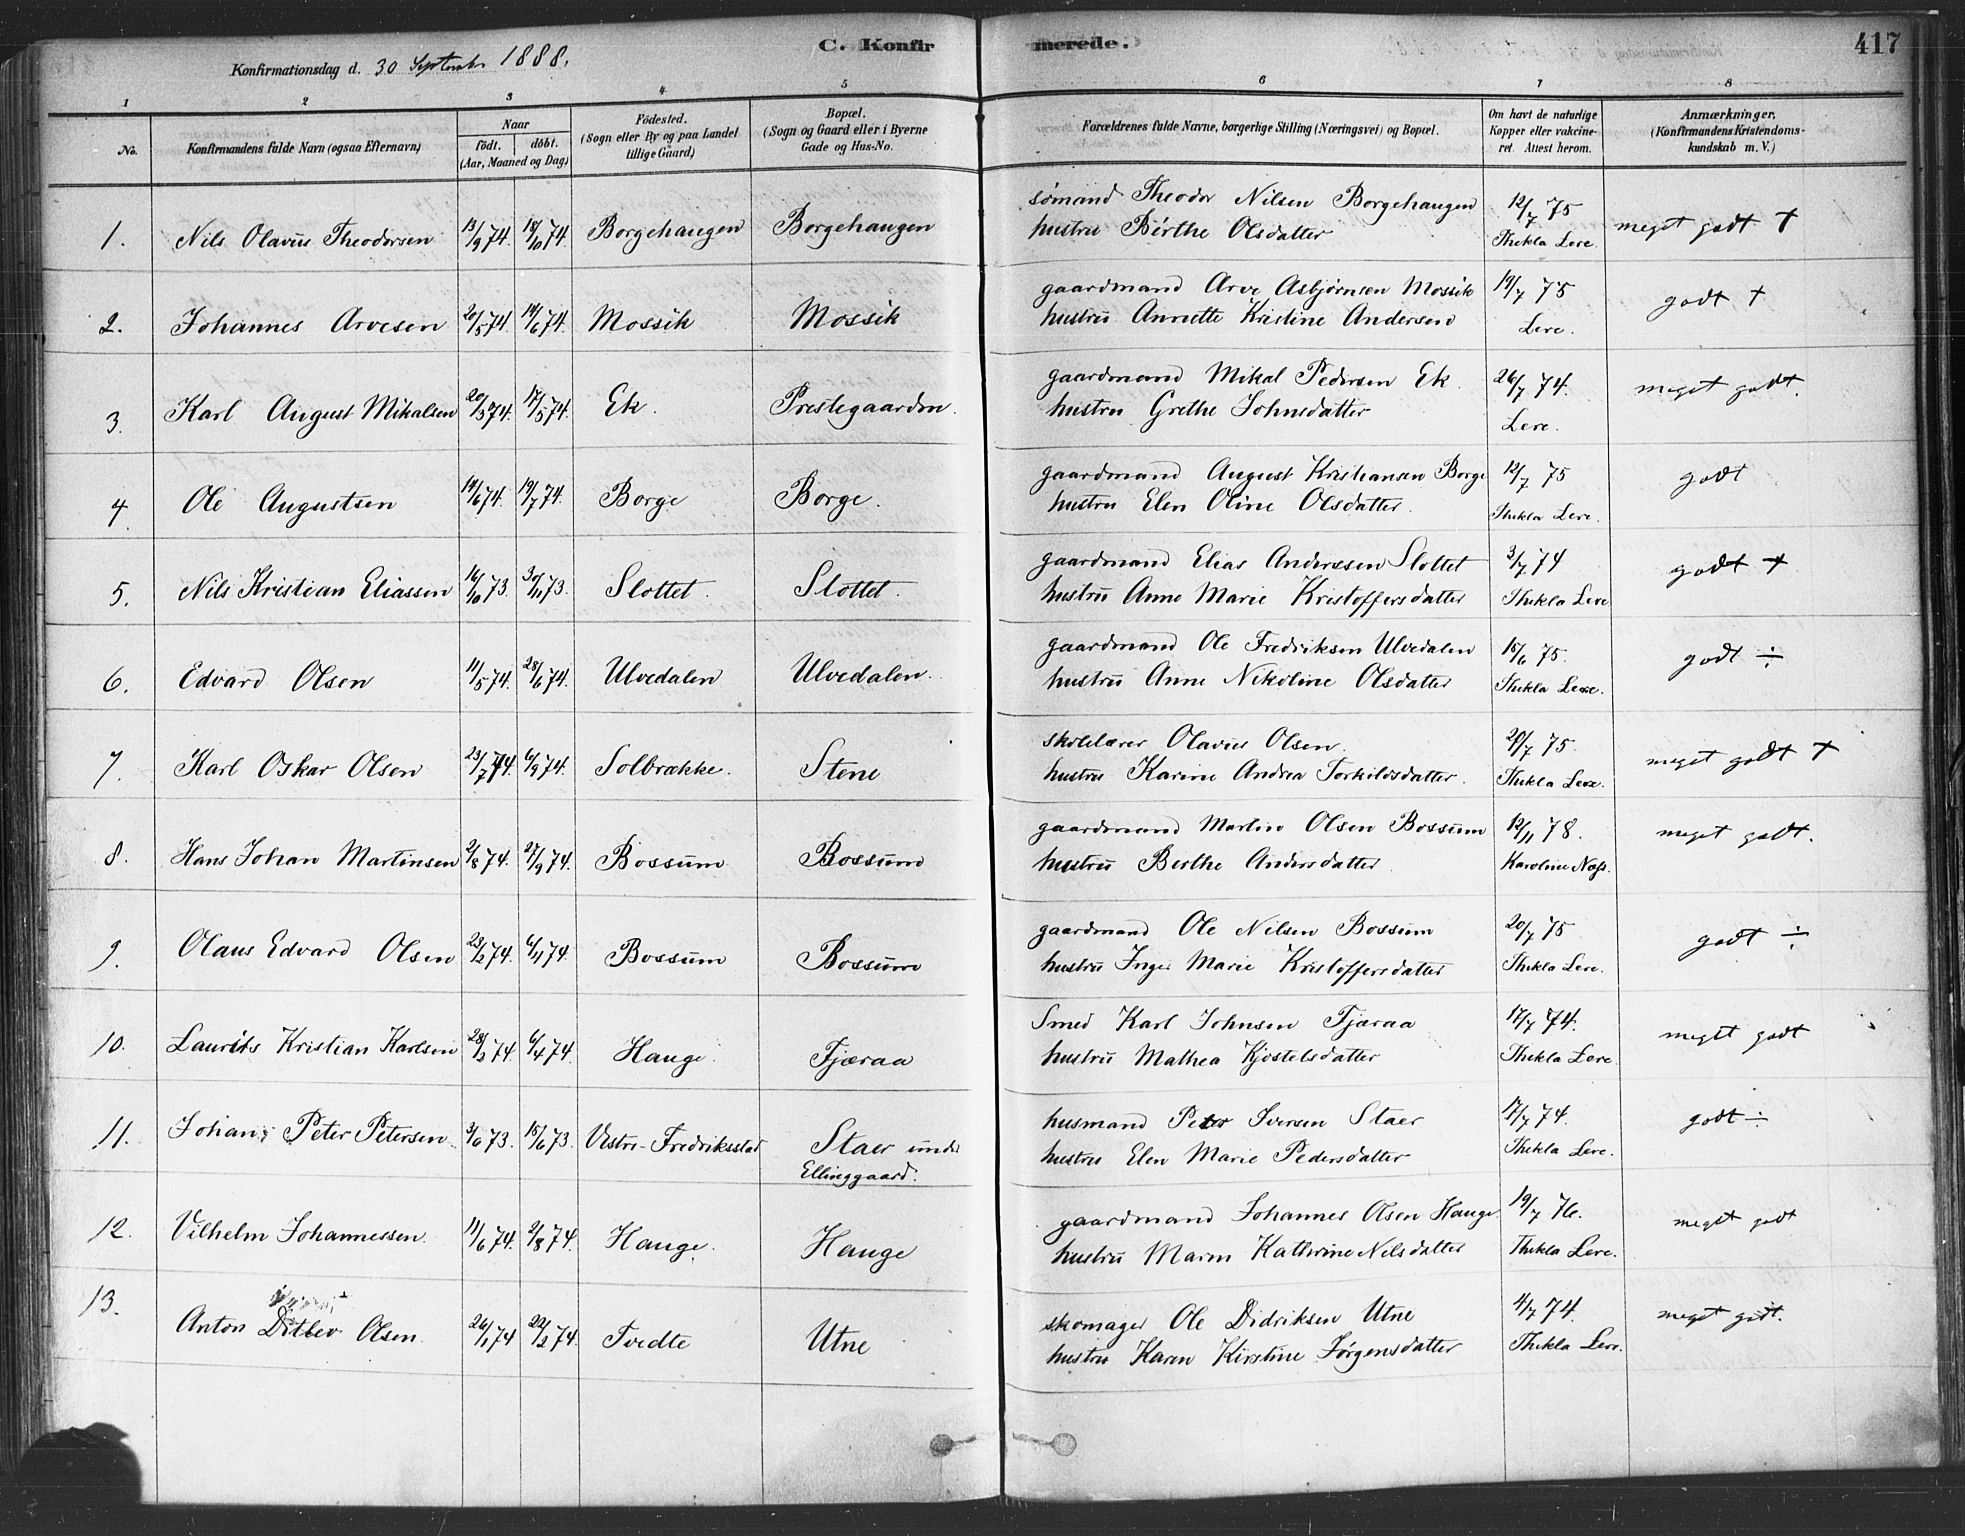 C. Konfirmerede.
417
Konfirmationsdag d. 30 September 1888.
1 2 3 4 5 6 7 8
No.
Konfirmandens fulde Navn (ogsaa Efternavn)
Naar
født. døbt.
(Aar, Maaned og Dag)
Fødested.
(Sogn eller By og paa Landet
tillige Gaard)
Bopæl.
(Sogn og Gaard eller i Byerne
Gade og Hus-No.
Forældrenes fulde Navne, borgerlige Stilling (Næringsvei) og Bopæl.
Om havt de naturlige
Kopper eller vakcine-
ret. Attest herom.
Anmærkninger.
(Konfirmandens Kristendoms-
kundskab m. V.)
1. Nils Olavus Theodorsen 13/9 74. 18/10 74. Borgehaugen Borgehaugen sømand Theodor Nilsen Borgehaugen 12/7 75 meget godt +
hustru Birthe Olsdatter Thekla Lere.
2. Johannes Arvesen 20/5 74. 14/6 74. Mossik Mossik gaardmand Arve Asbjørnsen Mossik 19/7 75 godt +
hustru Annette Kristine Andersen Lere.
3. Karl August Mikalsen 20/3 74. 17/5 74. Ek. Prestegaarden. gaardmand Mikal Pedersen Ek. 26/7 74. meget godt.
hustru Grethe Johnsdatter Lere.
4. Ole Augustsen 14/6 74. 19/7 74. Borge Borge. gaardmand August Kristiansen Borge 12/7 75 godt
hustru Elen Oline Olsdatter. Thekla Lere.
5. Nils Kristian Eliassen 16/10 73. 30/11 73. Slottet. Slottet. gaardmand Elias Andersen Slottet 3/7 74 godt +
hustru Anne Marie Kristoffersdatter Thekla Lere
6. Edvard Olsen 11/5 74. 28/6 74. Ulvedalen Ulvedalen. gaardmand Ole Fredriksen Ulvedalen 15/6 75. godt ÷
hustru Anne Nikoline Olsdatter Thekla Lere.
7. Karl Oskar Olsen 23/7 74. 6/9 74. Solbrække. Stene skolelærer Olavus Olsen. 20/7 75. meget godt +
hustru Karine Andrea Torkildsdatter. Thekla Lere.
8. Hans Johan Martinsen 2/8 74. 27/9 74. Bossum Bossum gaardmand Martin Olsen Bossum 12/11 78. meget godt.
hustru Berthe Andersdatter Karoline Næss.
9. Olaus Edvard Olsen 23/2 74. 6/4 74. Bossum Bossum gaardmand Ole Nilsen Bossum 20/7 75 godt ÷
hustru Inger Marie Kristoffersdatter Thekla Lere.
10. Laurits Kristian Karlsen 28/2 74 6/4 74. Hauge. Fjæraa Smed Karl Johnsen Fjæraa 17/7 74. meget godt
hustru Mathea Kjøstelsdatter Thekla Lere.
11. Johan Peter Petersen 3/6 73. 15/6 73. Vestre-Fredriksstad Staer under husmand Peter Iversen Staer 17/7 74. godt ÷
Ellinggaard. hustru Elen Marie Pedersdatter Thekla Lere.
12. Vilhelm Johannessen. 11/6 74. 2/8 74. Hauge. Hauge gaardmand Johannes Olsen Hauge. 19/7 76. meget godt
hustru Maren Kathrine Nilsdatter Thekla Lere.
13. Anton Ditlev Olsen 26/1 74 22/2 74. Tvedte Utne skomager Ole Didriksen Utne 4/7 74. meget godt.
hustru Karen Kirstine Jørgensdatter Thekla Lere.